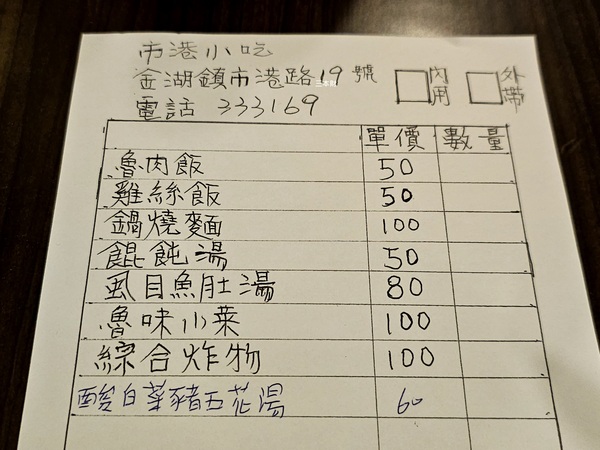 市港小吃
金湖鎮市港路19號 內用 外帶
電話 333169
單價 數量
魯肉飯 50
雞絲飯 50
鍋燒麵 100
餛飩湯 50
虱目魚肚湯 80
魯味小菜 100
綜合炸物 100
酸白菜豬五花湯 60